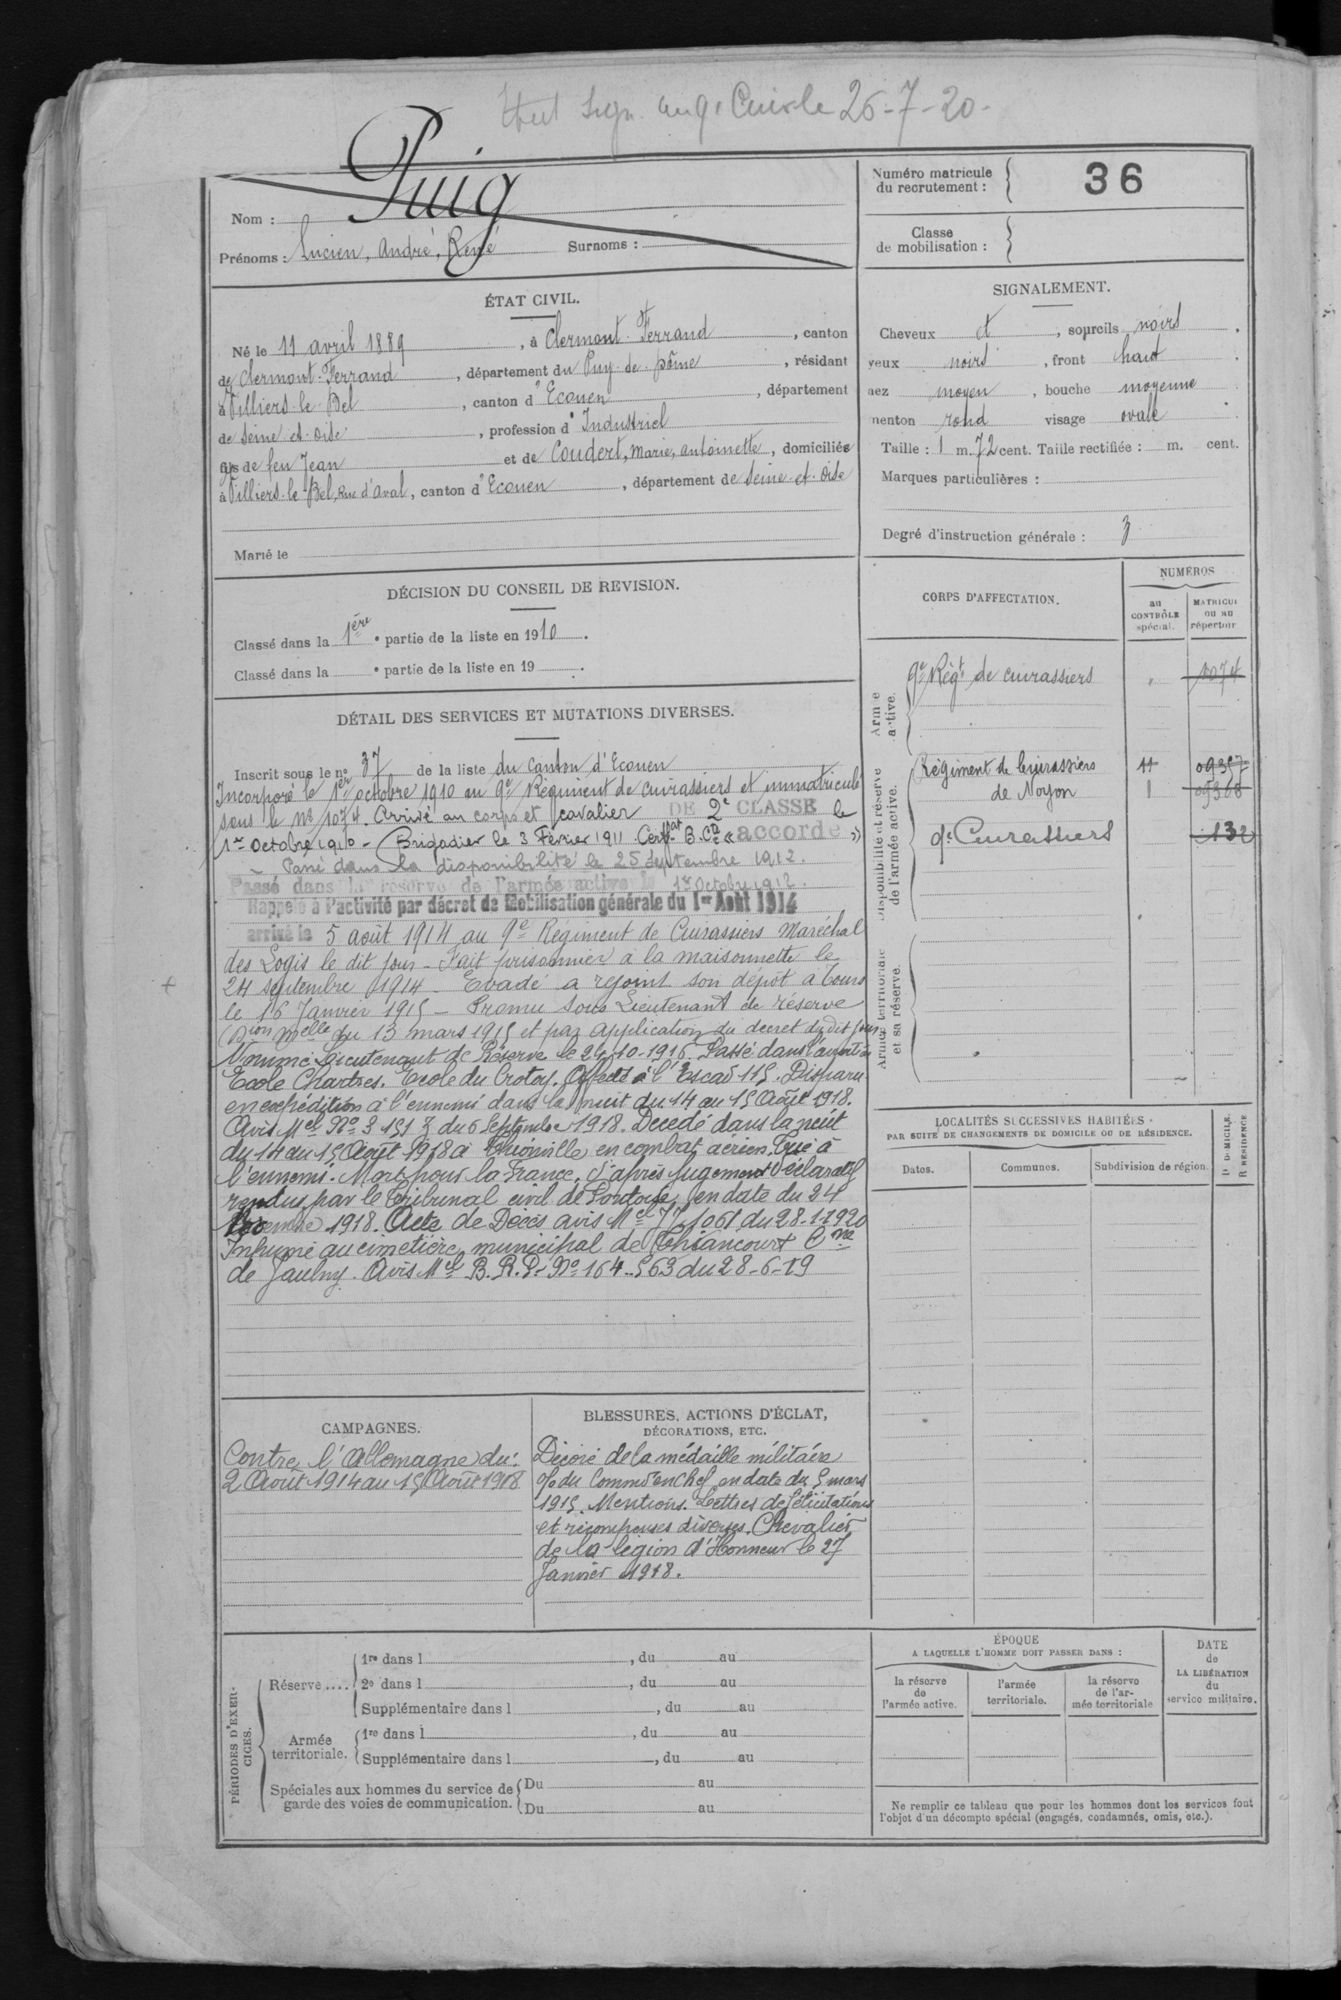 Puig
Nom :
Prénoms : Lucien, André, René Surnoms :
Numéro matricule
du recrutement :
36
Classe
de mobilisation :
ÉTAT CIVIL.
Né le 11 avril 1889, à Clermont-Ferrand, canton
de Clermont-Ferrand, département du Puy-de-Dôme, résidant
à Villiers-le-Bel, canton d'Ecouen, département
de Seine-et-Oise, profession d'Industriel
fils de feu Jean et de Coudert, Marie, antoinette, domiciliés
à Villiers-le-Bel, Rue d'Aval, canton d'Ecouen, département de Seine-et-Oise
Marié le
SIGNALEMENT.
Cheveux et, sourcils noirs.
yeux noirs, front haut
nez moyen, bouche moyenne
menton rond visage ovale
Taille : 1 m. 72 cent. Taille rectifiée : m. cent.
Marques particulières :
Degré d'instruction générale : 3
DÉCISION DU CONSEIL DE REVISION.
Classé dans la 1ère e partie de la liste en 1910.
Classé dans la e partie de la liste en 19 .
DÉTAIL DES SERVICES ET MUTATIONS DIVERSES.
Inscrit sous le no 37 de la liste du canton d'Ecouen
Incorporé le 1er octobre 1910 au 9e Régiment de cuirassiers et immatriculé
sous le No 1074. Arrivé au corps et cavalier DE 2e CLASSE le
1er Octobre 1910 - Brigadier le 3 Février 1911 Cerfat B. Cte « accordé »
- Passé dans la disponibilité le 25 Septembre 1912.
Passé dans la réserve de l'armée active le 1er Octobre 1912.
Rappelé à l'activité par décret de Mobilisation générale du 1er Août 1914
arrivé le 5 août 1914 au 9e Régiment de Cuirassiers Maréchal
des Logis le dit jour - Fait prisonnier à la maisonnette le
24 septembre 1914 - Evadé a rejoint son dépôt à Tours
le 16 Janvier 1915 - Promu Sous Lieutenant de réserve
(Dion Melle du 13 mars 1915 et par application du decret du dit jour
Nommé Lieutenant de Réserve le 24-10-1916. Passé dans l'aviation
Ecole Chartres. Ecole du Crotoy. Affecté à l'Escad 115. Disparu
en expédition à l'ennemi dans la nuit du 14 au 15 Août 1918.
Avis Mel No 3 151 3 du 6 Septembre 1918. Décédé dans la nuit
du 14 au 15 Août 1918 à Thionville en combat aérien. Tué à
l'ennemi. Mort pour la France. d'après Jugement déclaratif
rendu par le Tribunal civil de Pontoise en date du 24
1918. Acte de Décès avis Mel 1061 du 28-1-1920
Inhumé au cimetière municipal de Thiancourt Cne
de Jaulny. Avis Mel B. R. P. No 164-563 du 28-6-19
CORPS D'AFFECTATION.
NUMÉROS
au
CONTRÔLE
spécial.
MATRICUL
ou au
répertoir
Armée
active.
9e Régt de cuirassiers " 1074
Disponibilité et réserve
de l'armée active.
Régiment de Cuirassiers 11 09357
de Noyon 1 09368
9e Cuirassiers 132
Armée territoriale
et sa réserve.
LOCALITÉS SUCCESSIVES HABITÉES
PAR SUITE DE CHANGEMENTS DE DOMICILE OU DE RÉSIDENCE.
Dates. Communes. Subdivision de région.
D DOMICILE.
R RÉSIDENCE
CAMPAGNES.
Contre l'Allemagne du :
2 Août 1914 au 15 Août 1918
BLESSURES, ACTIONS D'ÉCLAT,
DÉCORATIONS, ETC.
Décoré de la médaille militaire
% du Commt en Chef en date du 5 mars
1915. Mentions. Lettres de félicitations
et récompenses diverses. Chevalier
de la légion d'Honneur le 27
Janvier 1918.
PÉRIODES D'EXER-
CICES.
Réserve ....
1re dans l , du au
2e dans l , du au
Supplémentaire dans l , du au
Armée
territoriale.
1re dans l , du au
Supplémentaire dans l , du au
Spéciales aux hommes du service de
garde des voies de communication.
Du au
Du au
ÉPOQUE
A LAQUELLE L'HOMME DOIT PASSER DANS :
la réserve
de
l'armée active.
l'armée
territoriale.
la réserve
de l'ar-
mée territoriale
DATE
de
LA LIBÉRATION
du
service militaire.
Ne remplir ce tableau que pour les hommes dont les services font
l'objet d'un décompte spécial (engagés, condamnés, omis, etc.).